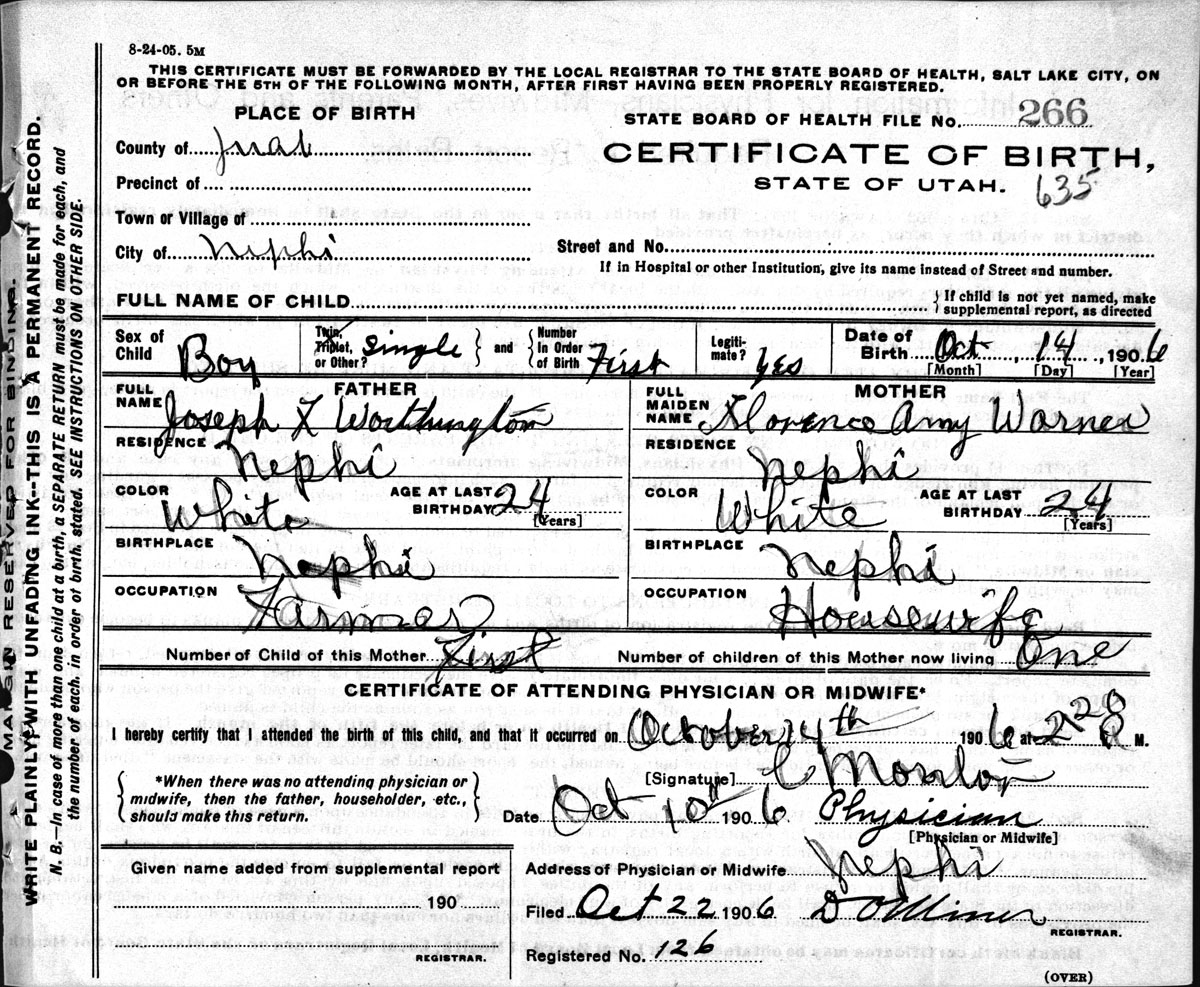 8-24-05. 5M
THIS CERTIFICATE MUST BE FORWARDED BY THE LOCAL REGISTRAR TO THE STATE BOARD OF HEALTH, SALT LAKE CITY, ON
OR BEFORE THE 5TH OF THE FOLLOWING MONTH, AFTER FIRST HAVING BEEN PROPERLY REGISTERED.
PLACE OF BIRTH
STATE BOARD OF HEALTH FILE No. 266
County of Juab
CERTIFICATE OF BIRTH,
Precinct of
STATE OF UTAH. 635
Town or Village of
City of Nephi
Street and No.
If in Hospital or other Institution, give its name instead of Street and number.
FULL NAME OF CHILD
If child is not yet named, make
supplemental report, as directed
Sex of Child Boy
Twin, Triplet, or Other? Single and Number In Order of Birth First
Legiti-mate? Yes
Date of Birth Oct, 14, 1906
[Month] [Day] [Year]
FATHER
FULL NAME Joseph L Worthington
RESIDENCE Nephi
COLOR White AGE AT LAST BIRTHDAY 24 [Years]
BIRTHPLACE Nephi
OCCUPATION Farmer
MOTHER
FULL MAIDEN NAME Florence Amy Warner
RESIDENCE Nephi
COLOR White AGE AT LAST BIRTHDAY 24 [Years]
BIRTHPLACE Nephi
OCCUPATION Housewife
Number of Child of this Mother First Number of children of this Mother now living One
CERTIFICATE OF ATTENDING PHYSICIAN OR MIDWIFE*
I hereby certify that I attended the birth of this child, and that it occurred on October 14th 1906 at 2 20 M.
*When there was no attending physician or
midwife, then the father, householder, etc.,
should make this return.
[Signature]
Date Oct 1906 Physician
[Physician or Midwife]
Given name added from supplemental report
190
REGISTRAR.
Address of Physician or Midwife Nephi
Filed Oct 22 1906 Miner
REGISTRAR.
Registered No. 126
(OVER)
MARGIN RESERVED FOR BINDING.
WRITE PLAINLY WITH UNFADING INK--THIS IS A PERMANENT RECORD.
N. B.—In case of more than one child at a birth, a SEPARATE RETURN must be made for each, and
the number of each, in order of birth, stated. SEE INSTRUCTIONS ON OTHER SIDE.